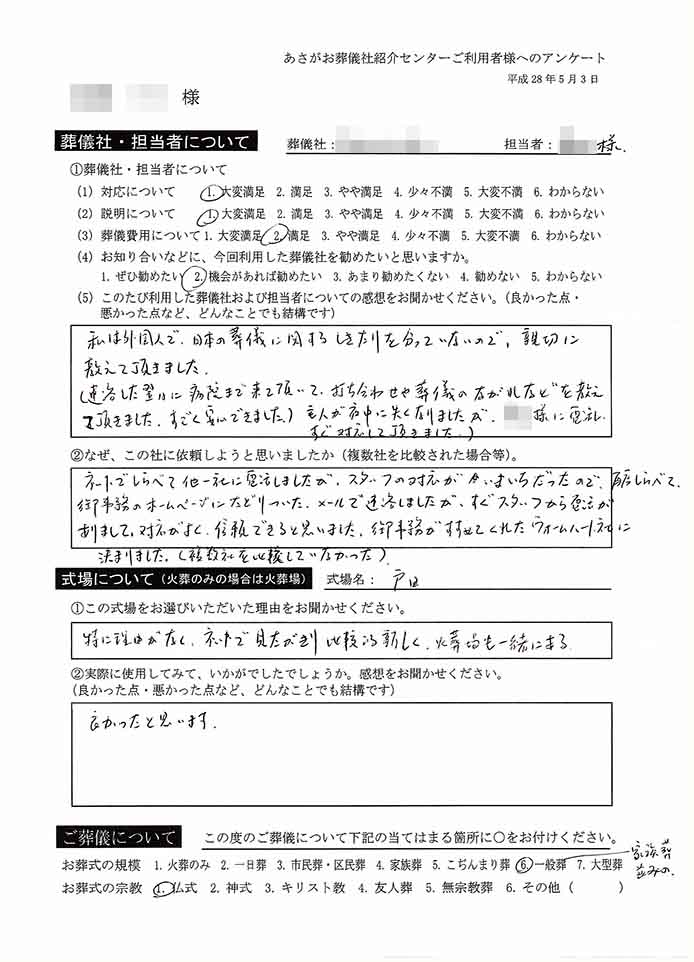 あさがお葬儀社紹介センターご利用者様へのアンケート
平成28年5月3日
様
葬儀社・担当者について 葬儀社： 担当者： 様.
①葬儀社・担当者について
(1) 対応について 1. 大変満足 2. 満足 3. やや満足 4. 少々不満 5. 大変不満 6. わからない
(2) 説明について 1. 大変満足 2. 満足 3. やや満足 4. 少々不満 5. 大変不満 6. わからない
(3) 葬儀費用について 1. 大変満足 2. 満足 3. やや満足 4. 少々不満 5. 大変不満 6. わからない
(4) お知り合いなどに、今回利用した葬儀社を勧めたいと思いますか。
1. ぜひ勧めたい 2. 機会があれば勧めたい 3. あまり勧めたくない 4. 勧めない 5. わからない
(5) このたび利用した葬儀社および担当者についての感想をお聞かせください。(良かった点・
悪かった点など、どんなことでも結構です)
私は外国人で、日本の葬儀に関するしきたりを分っていないので、親切に
教えて頂きました.
(連絡した翌日に病院まで来て頂いて、打ち合わせや葬儀のながれなどを教え
て頂きました. すごく安心できました.) 主人が夜中に失くなりましたが、 様に電話し
すぐ対応して頂きました.)
②なぜ、この社に依頼しようと思いましたか(複数社を比較された場合等)。
ネットでしらべて他一社に電話しましたが、スタッフの対応がいまいちだったので、再度しらべて、
御事務のホームページにたどりついた. メールで連絡しましたが、すぐスタッフから電話が
ありまして、対応がよく、信頼できると思いました. 御事務がすすめてくれたウォームハート社に
決まりました. (複数社を比較していなかった)
式場について(火葬のみの場合は火葬場) 式場名： 戸田
①この式場をお選びいただいた理由をお聞かせください。
特に理由がなく、ネットで見たがぎり比較的新しく、火葬場も一緒にある
②実際に使用してみて、いかがでしたでしょうか。感想をお聞かせください。
(良かった点・悪かった点など、どんなことでも結構です)
良かったと思います.
ご葬儀について この度のご葬儀について下記の当てはまる箇所に○をお付けください。
お葬式の規模 1. 火葬のみ 2. 一日葬 3. 市民葬・区民葬 4. 家族葬 5. こぢんまり葬 6. 一般葬 7. 大型葬
家族葬
並みの.
お葬式の宗教 1. 仏式 2. 神式 3. キリスト教 4. 友人葬 5. 無宗教葬 6. その他 ( )